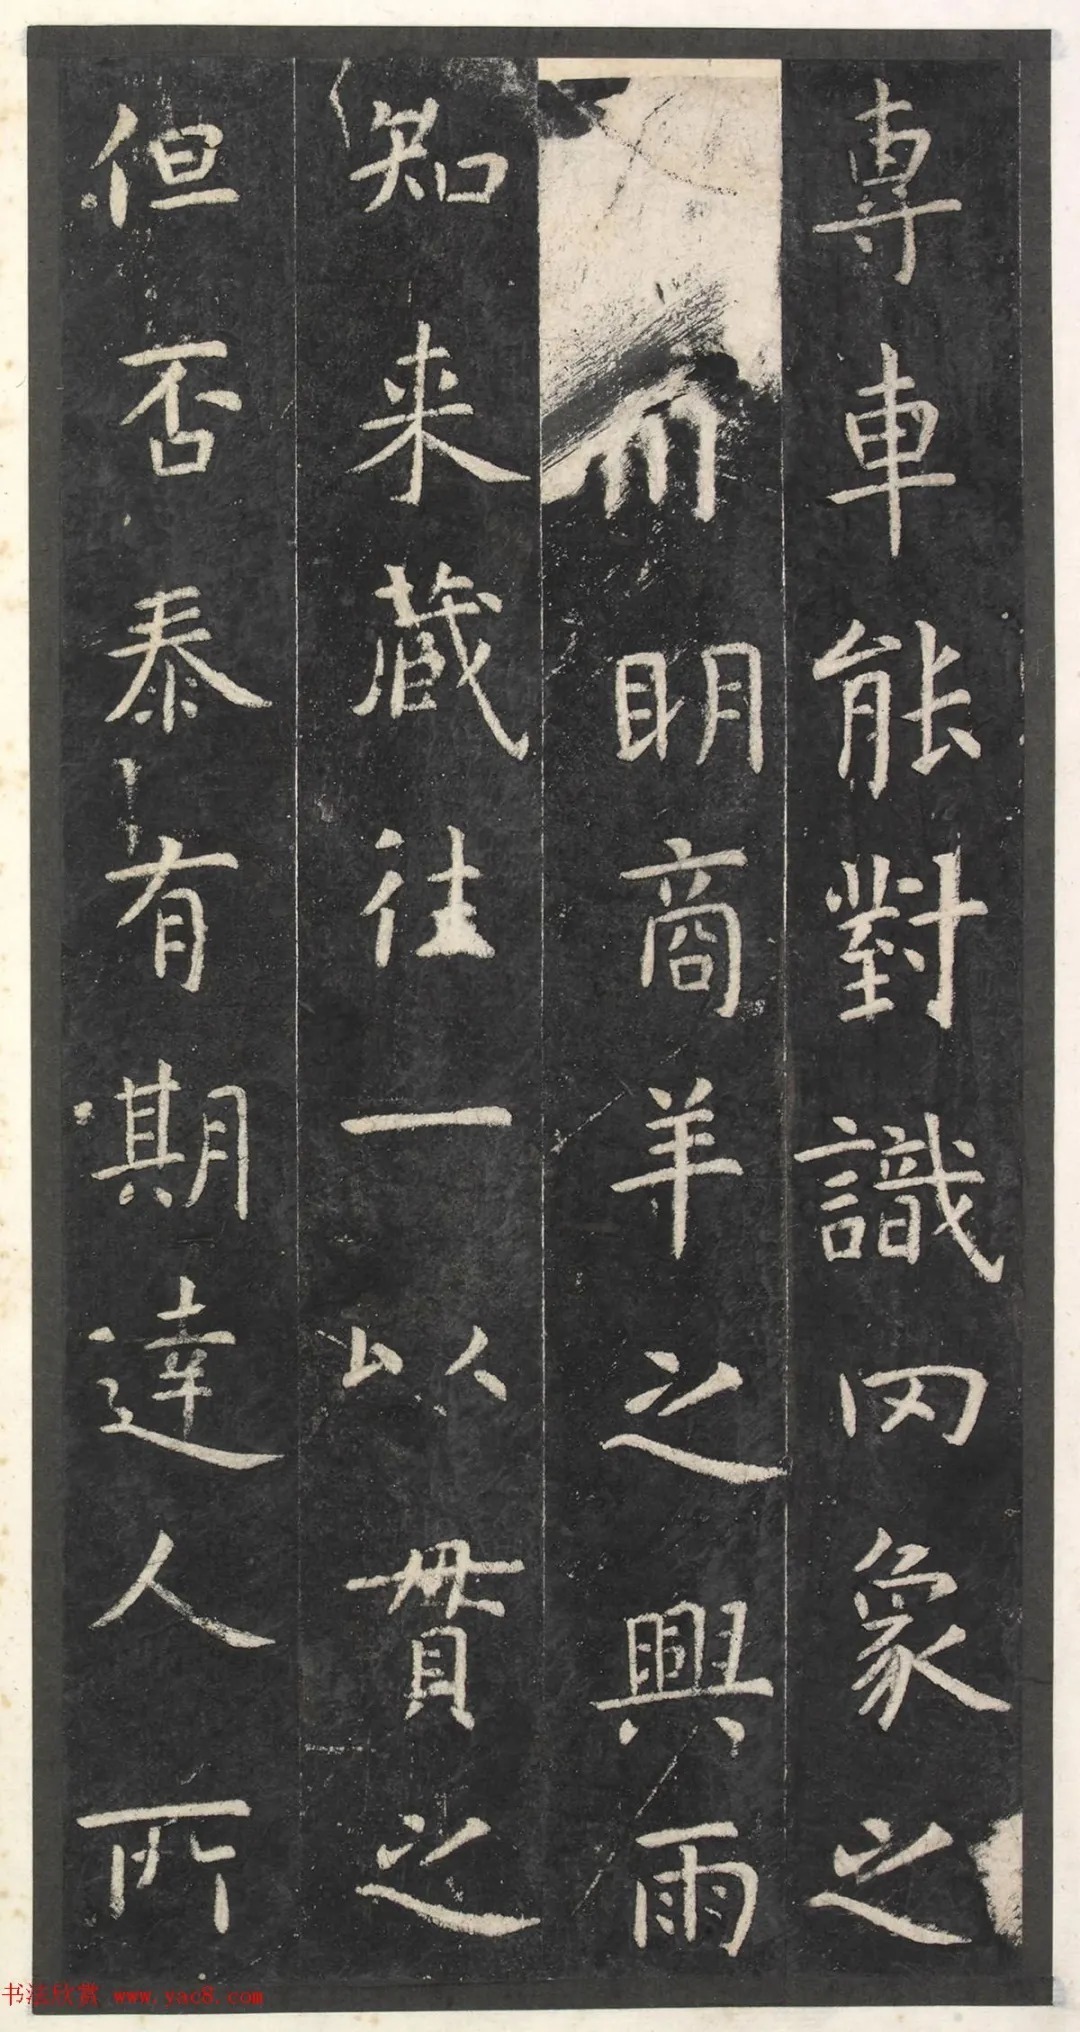 專車能對識罔象之
而明商羊之興雨
知来藏往一以貫之
但否泰有期達人所
书法欣赏 www.yac8.com